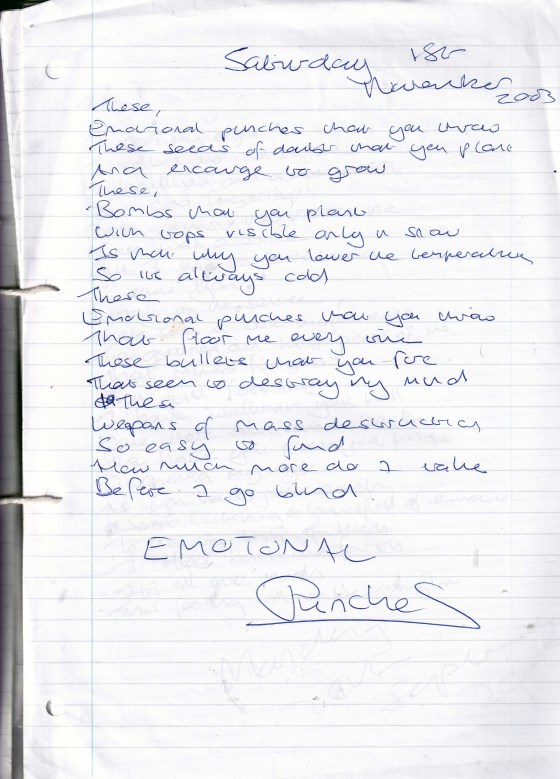 Saturday 1st
November
2003
These,
Emotional punches that you throw
These seeds of doubt that you plant
And encourage to grow
These,
Bombs that you plant
With tops visible only in snow
Is that why you lower the temperature
So it's always cold
These
Emotional punches that you throw
That floor me every time
These bullets that you fire
That seem to destroy my mind
These
Weapons of mass destruction
So easy to find
How much more do I take
Before I go blind
EMOTONAL
Punches